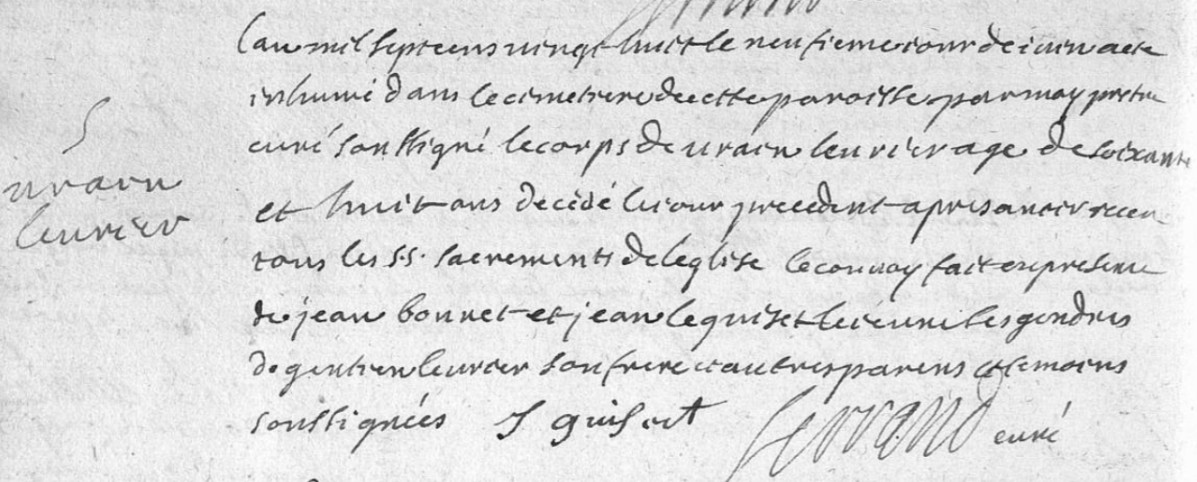 S
urain
leurier
Lan mil sept cens vingt huit le neufieme jour de a ete
inhumé dans le cimetiere de cette paroisse par moy pretre
curé soussigné le corps de urain leurier agé de soixante
et huit ans decidé le jour precedent apres avoir receu
tous les s.s. sacrements de leglise le convoy fait en presence
de jean bonnet et jean le jeune ses gendres
de gentien leurier son frere et autres parens et temoins
soussignées J guiset ferrand curé